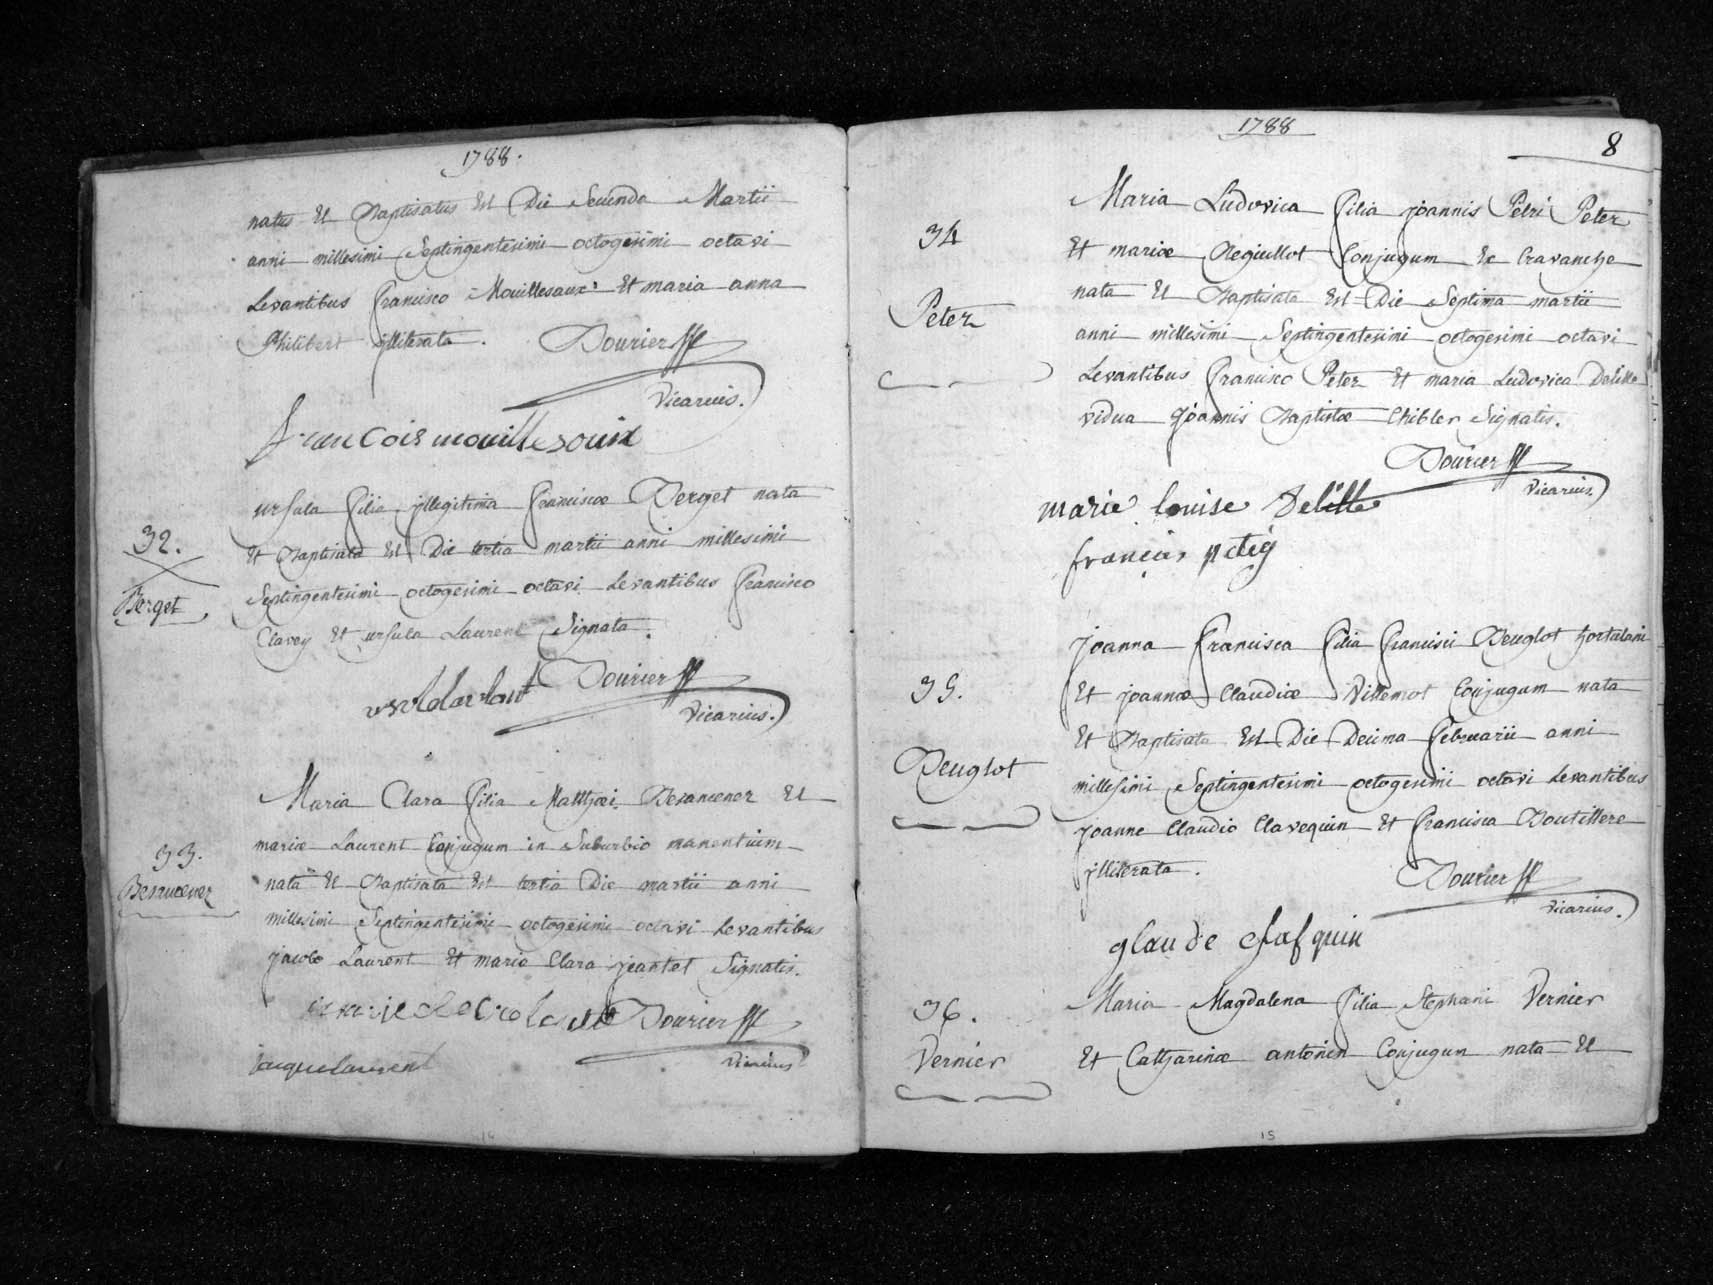 1788.
natus Et Baptisatus Est Die Secunda Martii
anni millesimi Septingentesimi octogesimi octavi
Levantibus Francisco Mouillesaux Et maria anna
Philibert illiterata. Dourier
Vicarius.
francois mouillesoux
32.
Berget
ursula filia illegitima Franciscæ Berget nata
Et Baptisata Est Die tertia martii anni millesimi
Septingentesimi octogesimi octavi Levantibus Francisco
Clavey Et ursula Laurent Signata.
Dourier
Vicarius.
33.
Besancener
Maria Clara filia Matthæi Besancener Et
mariæ Laurent Conjugum in Suburbio manentium
nata Et Baptisata Est tertia Die martii anni
millesimi Septingentesimi octogesimi octavi Levantibus
jacobo Laurent Et maria Clara jeantet Signatis.
Dourier
jacque laurent
Vicarius
16
1788
8
34
Peter
Maria Ludovica filia joannis Petri Peter
Et mariæ Reguillot Conjugum Ex Cravanche
nata Et Baptisata Est Die Septima martii
anni millesimi Septingentesimi octogesimi octavi
Levantibus Francisco Peter Et maria Ludovica Delille
vidua joannis Baptistæ Chibler Signatis.
Dourier
Vicarius.
marie louise Delille
françois
35.
Beuglot
joanna Francisca filia Francisci Beuglot hortulani
Et joannæ Claudiæ Villemot Conjugum nata
Et Baptisata Est Die Decima februarii anni
millesimi Septingentesimi octogesimi octavi Levantibus
joanne Claudio Clavequin Et Francisca Boutillere
illiterata.
Dourier
Vicarius.
glaude
36.
Vernier
Maria Magdalena filia Stephani Vernier
Et Catharinæ antonin Conjugum nata Et
15